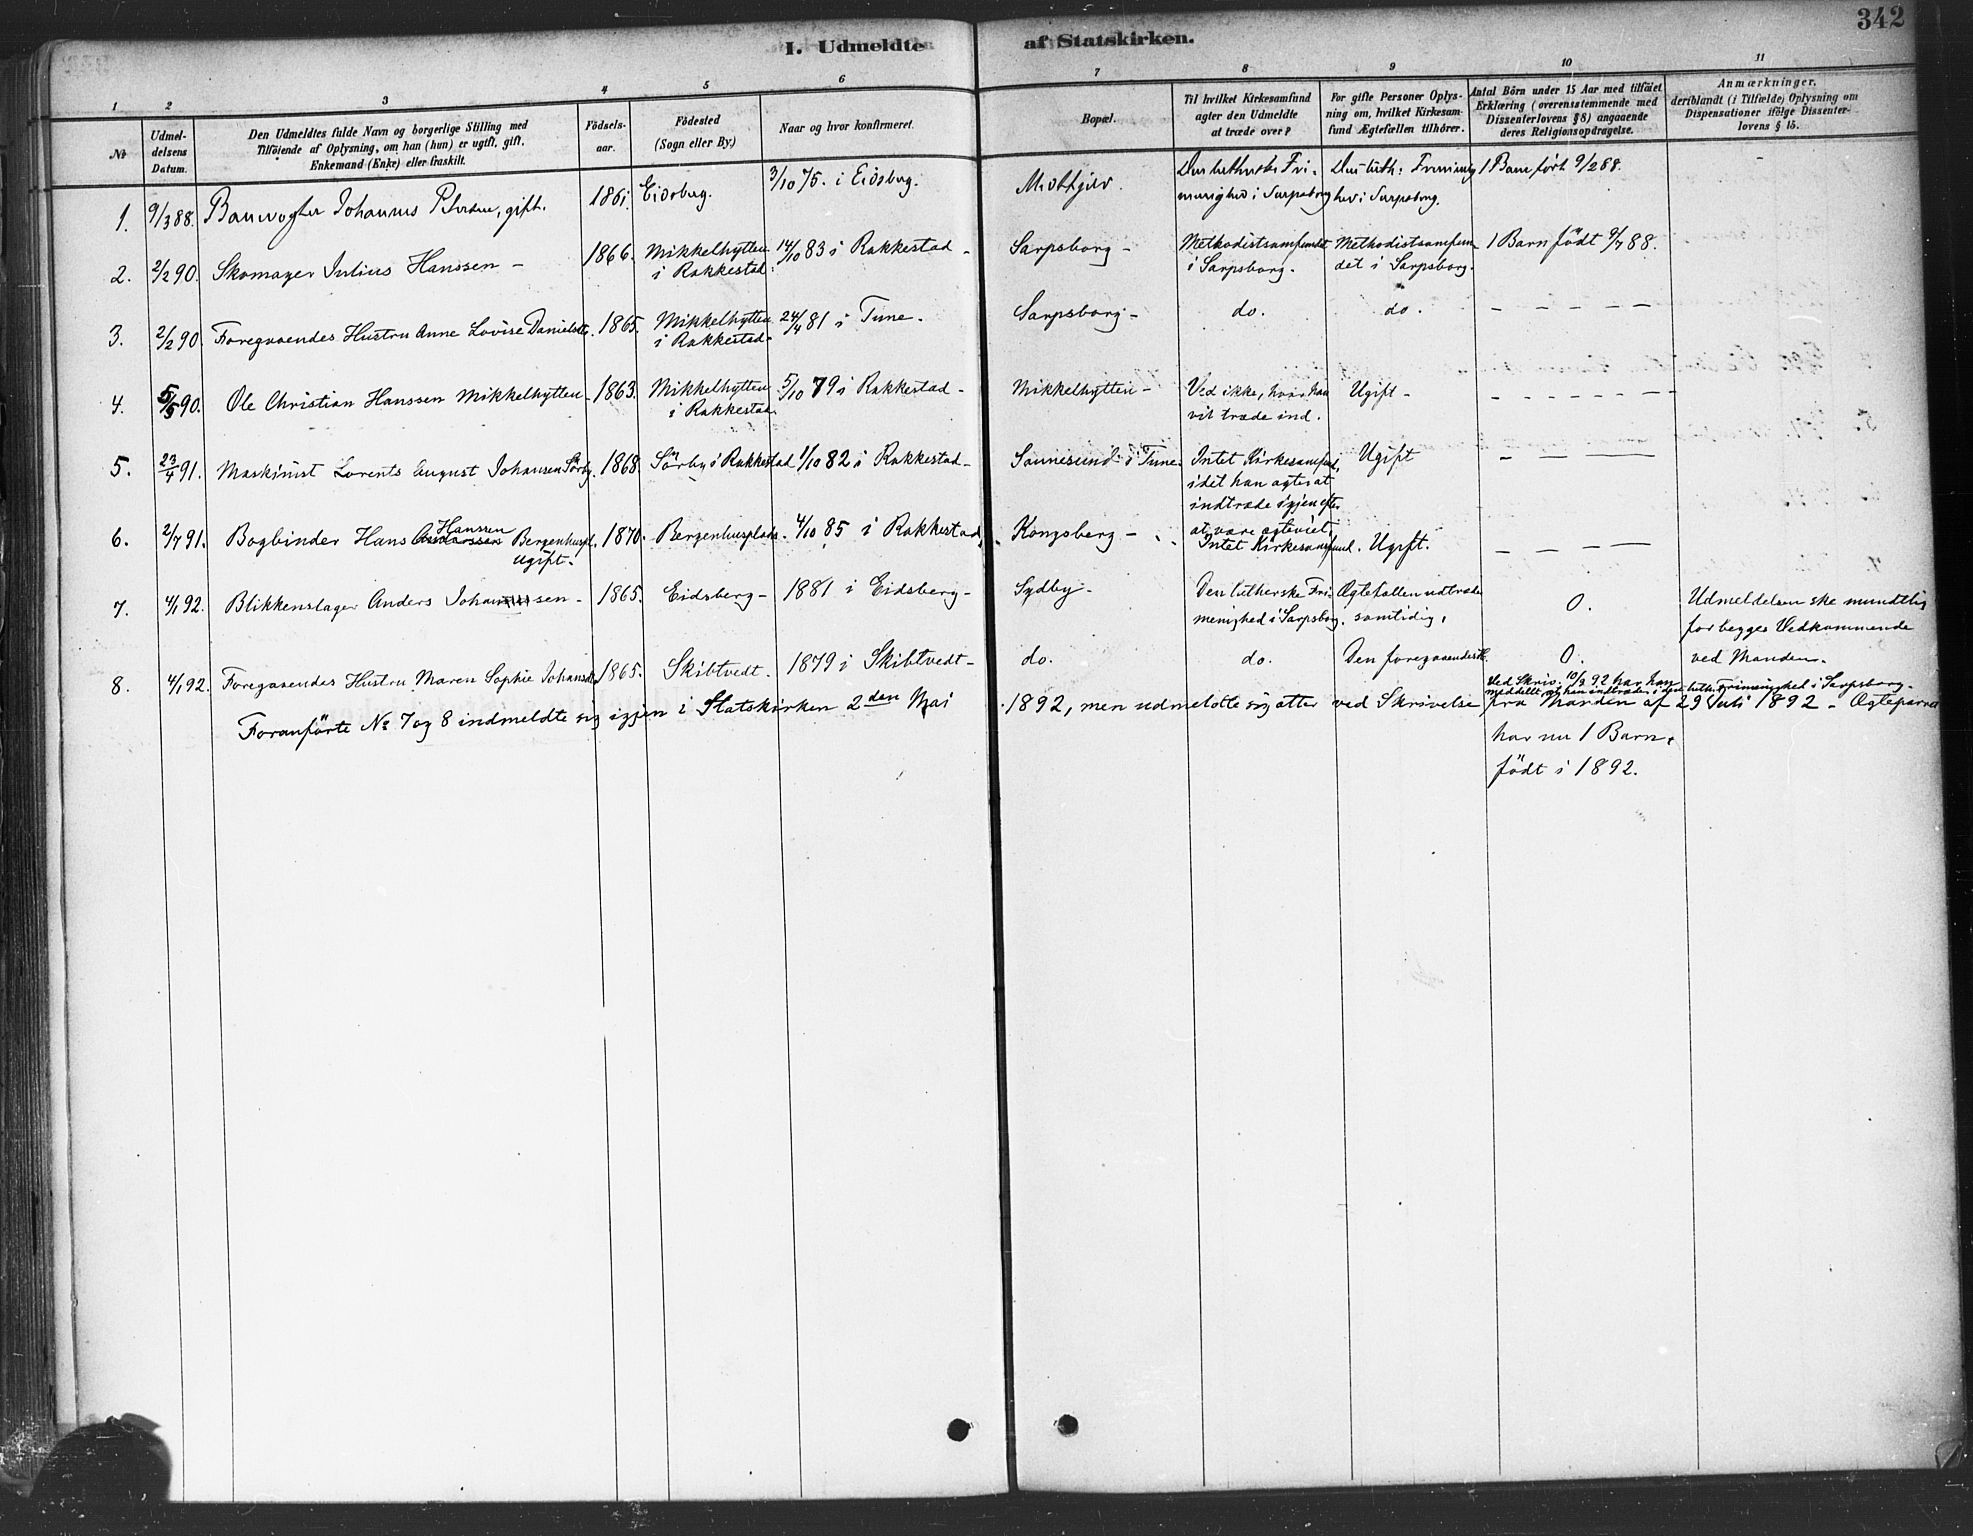 342
I. Udmeldte af Statskirken.
1 2 3 4 5 6 7 8 9 10 11
No
Udmel-
delsens
Datum.
Den Udmeldtes fulde Navn og borgerlige Stilling med
Tilföiende af Oplysning, om han (hun) er ugift, gift,
Enkemand (Enke) eller fraskilt.
Födsels-
aar.
Födested
(Sogn eller By.)
Naar og hvor konfirmeret.
Bopæl.
Til hvilket Kirkesamfund
agter den Udmeldte
at træde over?
For gifte Personer Oplys-
ning om, hvilket Kirkesam-
fund Ægtefællen tilhörer.
Antal Börn under 15 Aar med tilföiet
Erklæring (overensstemmende med
Dissenterlovens § 8) angaaende
deres Religionsopdragelse.
Anmærkninger,
deriblandt (i Tilfælde) Oplysning om
Dispensationer ifölge Dissenter-
lovens § 15.
1. 9/3 88. Banevogter Johannes Petersen, gift. 1861. Eidsberg. 3/10 75. i Eidsberg.
Den lutherske Fri-
menighed i Sarpsborg
Den luth: Frimenig
hed i Sarpsborg.
1 Barn født 9/2 88.
2. 2/2 90. Skomager Julius Hanssen - 1866. Mikkelhytten
i Rakkestad. 14/10 83 i Rakkestad - Sarpsborg -
Methodistsamfundet
i Sarpsborg.
Methodistsamfun-
det i Sarpsborg.
1 Barn födt 9/7 88.
3. 2/2 90. Foregaaendes Hustru Anne Lovise Danielsdtr. 1865. Mikkelhytten
i Rakkestad. 24/4 81 i Tune. Sarpsborg - do. do. - - - - -
4. 5/5 90. Ole Christian Hanssen Mikkelhytten - 1863. Mikkelhytten
i Rakkestad. 5/10 79 i Rakkestad - Mikkelhytten -
Ved ikke, hvor han
vil træde ind.
Ugift - - - - - - - -
5. 23/4 91. Maskinist Lorents August Johansen Sörby. 1868. Sörby i Rakkestad 1/10 82 i Rakkestad - Sannesund i Tune.
Intet Kirkesamfund,
idet han agter at
indtræde igjen efter
at være ægteviet.
Ugift - - - -
6. 2/7 91. Bogbinder Hans Hanssen Bergenhuspl.
Ugift. 1870. Bergenhusplads. 4/10 85 i Rakkestad. Kongsberg - Intet Kirkesamfund. Ugift. - - - -
7. 4/1 92. Blikkenslager Anders Johannessen - 1865. Eidsberg - 1881 i Eidsberg - Sydby -
Den lutherske Fri-
menighed i Sarpsborg.
Ægtefællen udtræder
samtidig.
0.
Udmeldelsen ske mundtlig
for begges Vedkommende
ved Manden.
8. 4/1 92. Foregaaendes Hustru Maren Sophie Johansdtr. 1865. Skibtvedt. 1879 i Skibtvedt - do. do. Den foregaaendes 0.
Ved Skriv. 10/3 92 har han
meddelt at han indtræder i den luth. Frimenighed i Sarpsborg -
Foranförte No 7 og 8 indmeldte sig igjen i Statskirken 2den Mai 1892, men udmeldte sig atter ved Skrivelse fra Manden af 29 Juli 1892 - Ægteparret
har nu 1 Barn,
födt i 1892.